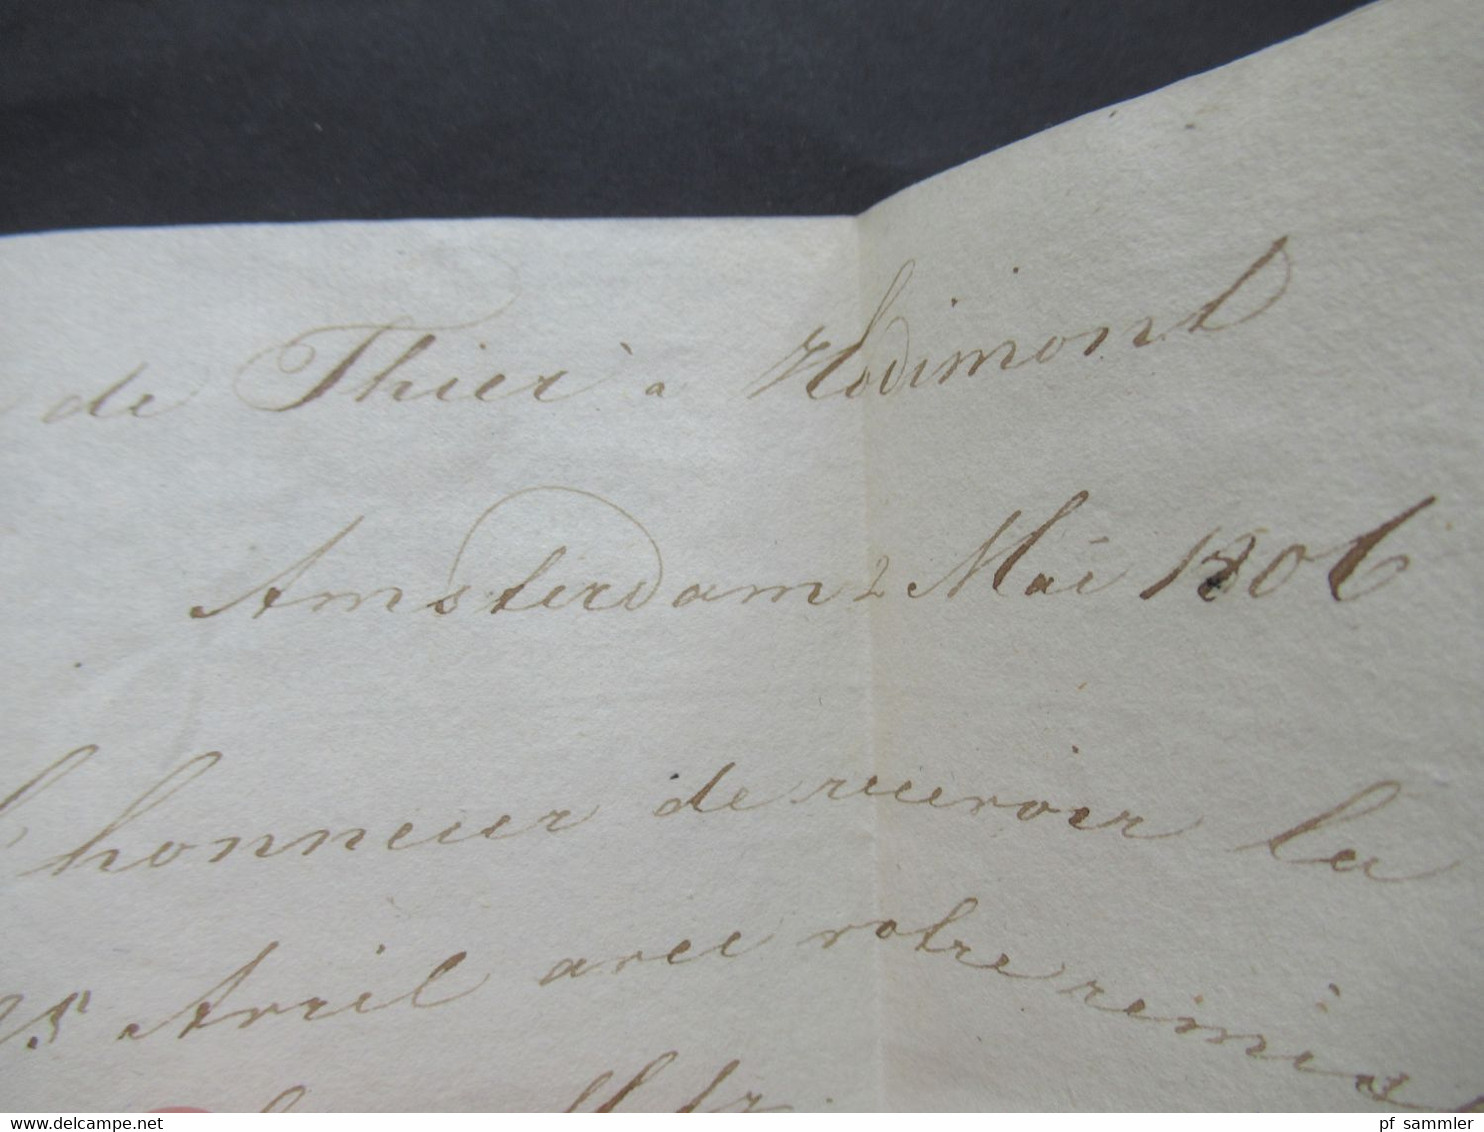 de Thier à Hodimont
Amsterdam 2 Mai 1806
l'honneur de recevoir la
25 Avril avec votre remise
www.delcampe.net
pf_sammler